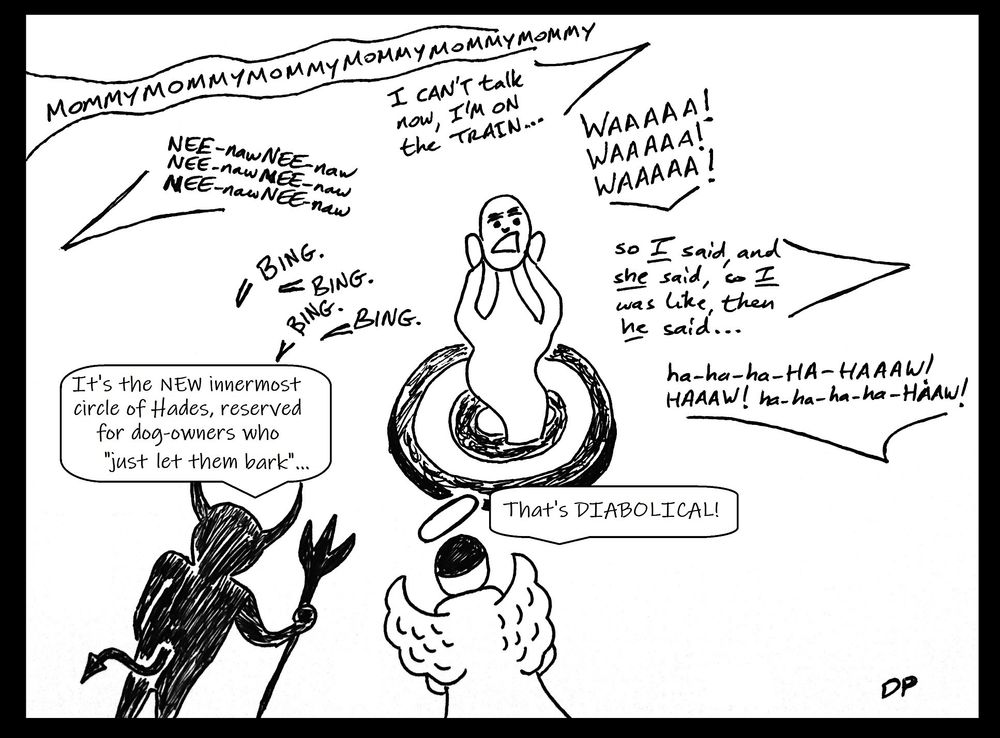 MOMMYMOMMYMOMMYMOMMYMOMMYMOMMY
I CAN'T talk
now, I'M ON
the TRAIN...
WAAAAA!
WAAAAA!
WAAAAA!
NEE-nawNEE-naw
NEE-nawNEE-naw
NEE-nawNEE-naw
BING.
BING.
BING.
BING.
so I said, and
she said, so I
was like, then
he said...
ha-ha-ha-HA-HAAAW!
HAAAW! ha-ha-ha-ha-HAAW!
It's the NEW innermost
circle of Hades, reserved
for dog-owners who
"just let them bark"...
That's DIABOLICAL!
DP